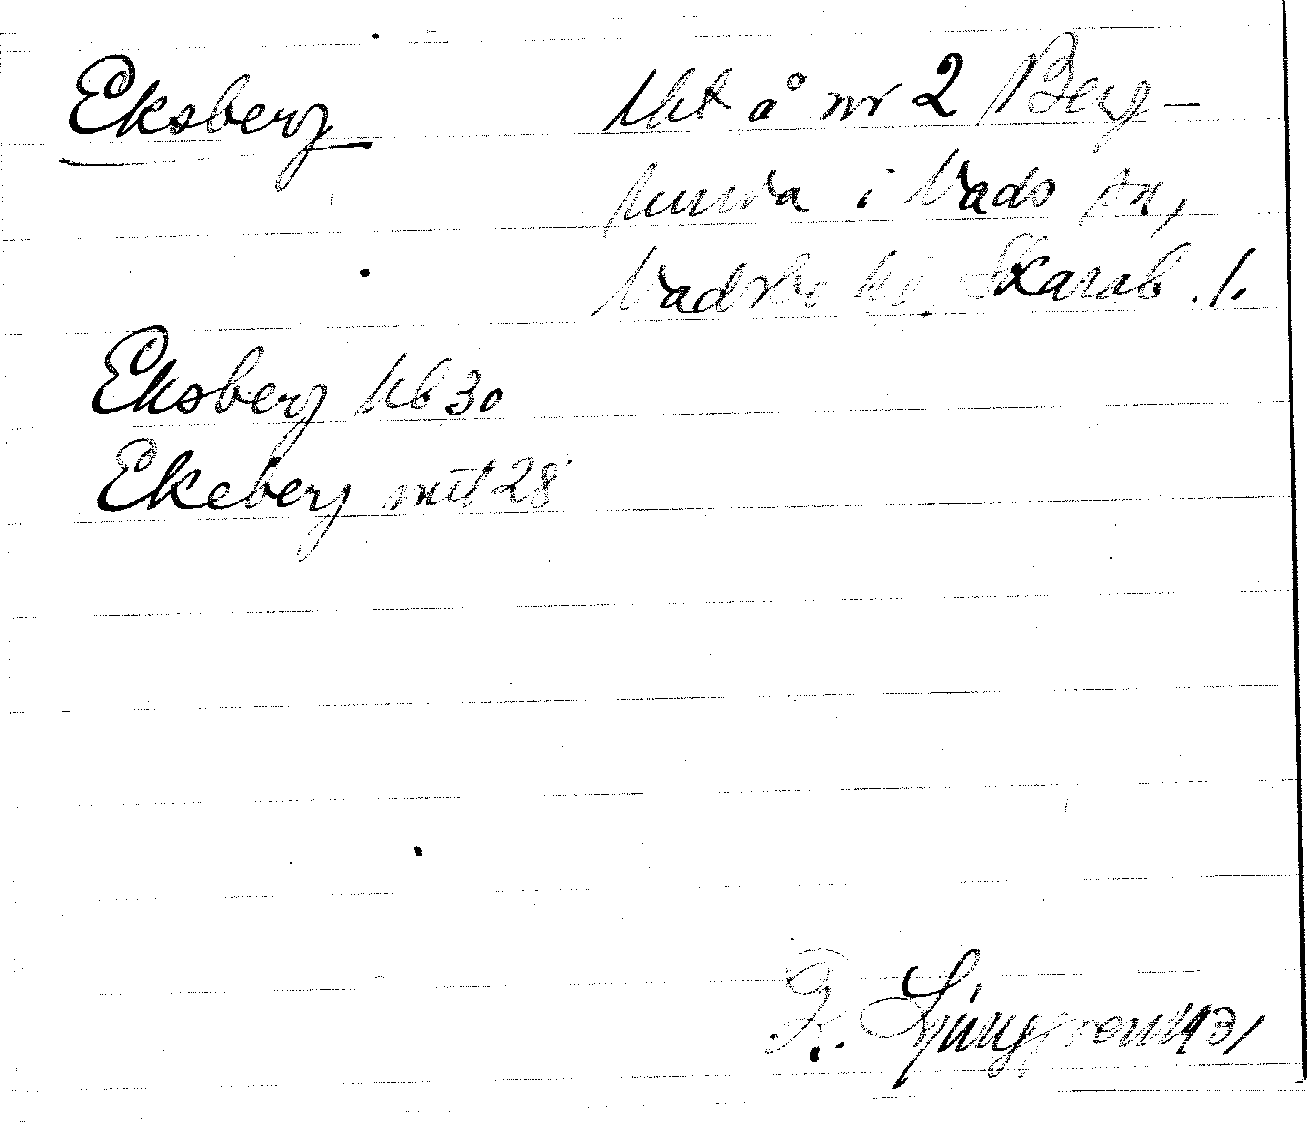 Eksberg
tht å nr 2 Berg-
humla i Vads sn,
Vadsbo hd. Skarab. l.
Eksberg kb 30
Ekeberg mtl 28
R. Ljunggren 1931